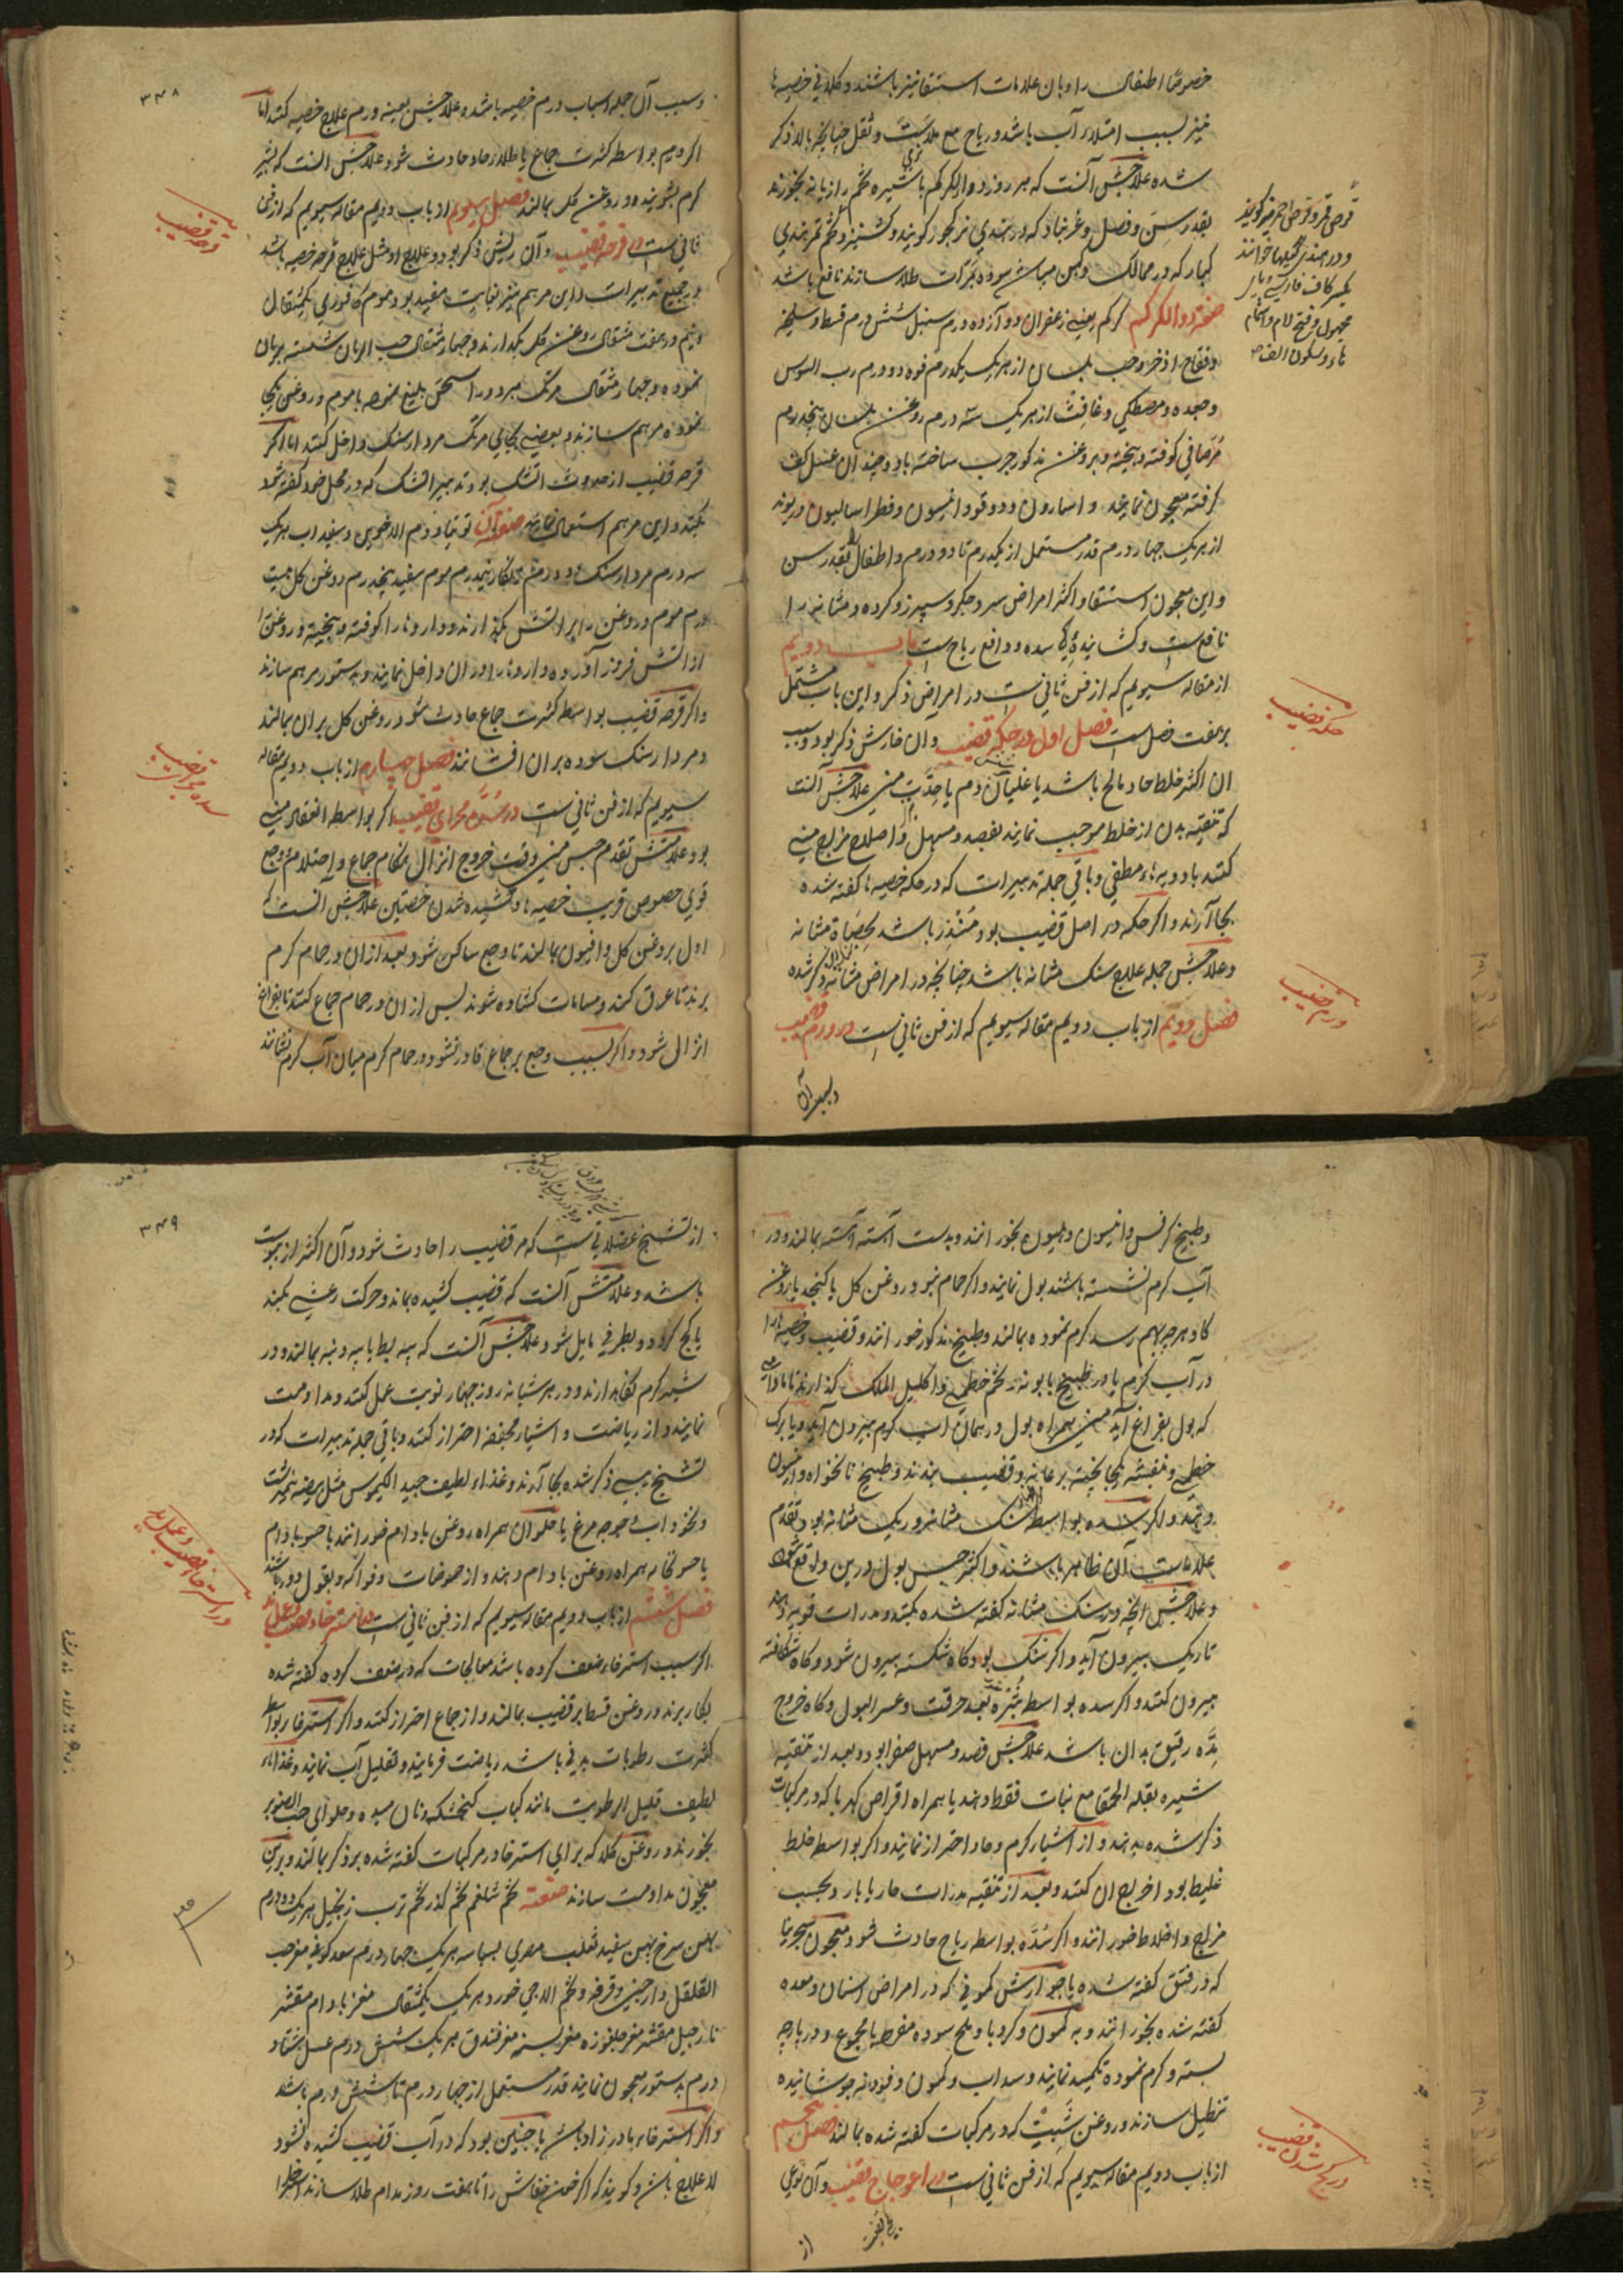 خصوصًا اطفال را و بان علامات استسقا نیز باشند و کلانی خصیه ها
نیز بسبب امتلاء آب باشد و ریاح مع ملاست و ثقل چنانچه بالا ذکر
شده علاجش آنست که هر روز دواالکرکم با شیره تخم رازیانه بخورند
بقدر سن و فصل و غرنباد که در هندی نرکچور گویند و کشنیز و تخم تمرهندی
کبار که در ممالک سوده طلا سازند نافع باشد
صفت دواالکرکم کرکم یعنی زعفران دوازده درم سنبل شش درم قسط و سلیخه
و فقاح اذخر و حب بلسان از هر یک یکدرم فوه دو درم رب السوس
و جعده و مصطکی و غافث از هر یک سه درم روغن بلسان پنجدرم
مرصافی کوفته و بیخته و بروغن مذکور چرب ساخته باد و چند آن عسل کف
گرفته معجون نمایند و اسارون و دوقو و انیسون و فطراسالیون و ریوند
از هر یک چهار درم قدر مستعمل از یکدرم تا دو درم و اطفال را بقدر سن
و این معجون استسقا و اکثر امراض سرد جگر و سپرز و گرده و مثانه را
نافع ست و کشاینده سده و دافع ریاح ست باب دویم
از مقاله سیویم که از فن ثانی ست در امراض ذکر و این باب مشتمل
بر هفت فصل ست فصل اول در حکه قضیب و آن خارش ذکر بود و سبب
آن اکثر خلط حاد مالح باشد یا غلیان دم یا حدت منی علاجش آنست
که تنقیه بدن از خلط موجب نمایند بفصد و مسهل و اصلاح مزاج منی
کنند بادویه مطفی و باقی جمله تدبیرات که در حکه خصیه ها گفته شده
بجا آرند و اگر حکه در اصل قضیب بود و منذر باشد بحصاة مثانه
و علاجش جمله علاج سنگ مثانه باشد چنانچه در امراض مثانه ذکر شده
فصل دویم از باب دویم مقاله سیویم که از فن ثانی ست در ورم قضیب
و سبب آن
حکه قضیب
ورم قضیب
۳۴۸
و سبب آن جمله اسباب ورم خصیه باشد و علاجش بعینه ورم علاج خصیه کنند اما
اگر ورم بواسطه کثرت جماع یا طلاء حاد حادث شود علاجش آنست که بشیر
گرم بشویند و روغن گل بمالند فصل سیویم از باب دویم مقاله سیویم که از فن
ثانی ست در قرحه قضیب و آن ریش ذکر بود و علاج او مثل علاج قرحه خصیه باشد
در جمیع تدبیرات و این مرهم نیز نهایت مفید بود موم کافوری یکمثقال
و نیم در هفت مثقال روغن گل بگدازند و چهار مثقال حب الریان شسته بریان
نموده و چهار مثقال مرتک هر دو را سحق بلیغ نموده با موم و روغن یکجا
نموده مرهم سازند و بعضی بجای مرتک مردارسنگ داخل کنند اما اگر
قرحه قضیب از حدوث آتشک بود تدبیر آتشک که در محل خود گفته شد
بکنند و این مرهم استعمال نمایند صفت آن توتیا و دم الاخوین و سفیداب هر یک
سه درم مردارسنگ دو درم زنگار نیمدرم موم سفید پنجدرم روغن گل بیست
درم موم و روغن را بر آتش بگدازند و داروها را کوفته و بیخته و روغن را
از آتش فرود آورده داروها را در آن داخل نمایند و بدستور مرهم سازند
و اگر قرحه قضیب بواسطه کثرت جماع حادث شود روغن گل بران بمالند
و مردارسنگ سوده بران افشانند فصل چهارم از باب دویم مقاله
سیویم که از فن ثانی ست در سده مجرای قضیب اگر بواسطه انعقاد منی
بود علامتش تقدم حبس منی وقت خروج انزال هنگام جماع و احتلام و وجع
قوی خصوص قریب خصیه ها و کشیده شدن خصیتین علاجش آنست که
اول بروغن گل و افیون بمالند تا وجع ساکن شود بعد ازان در حمام گرم
برند تا عرق کند و مسامات کشاده شوند پس ازان در حمام جماع کنند تا بفراغ
انزال شود و اگر بسبب وجع بر جماع قادر نشود در حمام گرم میان آب گرم نشانند
قرحه قضیب
سده مجرای قضیب
و طبیخ کرفس و انیسون و هلیون بخورانند و بدست آهسته آهسته بمالند و در
آب گرم نشسته باشند بول نمایند و اگر حمام نبود روغن گل یا کنجد یا روغن
گاو هر چه بهم رسد گرم نموده بمالند و طبیخ مذکور خورانند و قضیب و خصیه ها را
در آب گرم یا در طبیخ بابونه و تخم خطمی و اکلیل الملک گذارند
که بول بفراغ آید منی همراه بول در همان آب گرم بیرون آید و یا برگ
خطمی و بنفشه یکجا پخته بر عانه و قضیب بندند و طبیخ نانخواه و انیسون
دهند و اگر سده بواسطه سنگ مثانه و ریگ مثانه بود تقدم
علامات آن ظاهر باشند و اکثر حبس بول درین واقع شود
و علاجش آنچه در سنگ مثانه گفته شده بکنند و مدرات قویه دهند
تا ریگ بیرون آید و اگر سنگ بود گاه شکسته بیرون شود و گاه شگافته
بیرون کنند و اگر سده بواسطه بثره بعد حرقت و عسر البول و گاه خروج
مده رقیق بدان باشد علاجش فصد و مسهل صفرا بود و بعد از تنقیه
شیره بقلة الحمقا مع نبات فقط دهند یا همراه اقراص کهربا که در مرکبات
ذکر شده بدهند و از اشیاء گرم و حاد احتراز نمایند و اگر بواسطه خلط
غلیظ بود اخراج آن کنند و بعد از تنقیه مدرات حار یا بارد بحسب
مزاج و اخلاط خورانند و اگر سده بواسطه ریاح حادث شود معجون سجزینا
که در فتق گفته شده یا جوارش کمونی که در امراض اسنان و معده
گفته شده بخورانند و به کمون و کرویا و ملح سوده مفرط یا مجموع در پارچه
بسته و گرم نموده تکمید نمایند و سداب و کمون و فودنه جوشانیده
تنطیل سازند و روغن شبت که در مرکبات گفته شده بمالند فصل پنجم
از باب دویم مقاله سیویم که از فن ثانی ست در اعوجاج قضیب و آن نوعی
از
در کج شدن قضیب
۳۴۹
از تشنج عضلانی ست که مر قضیب را حادث شود و آن اکثر از یبوست
باشد و علامتش آنست که قضیب کشیده بماند و حرکت رعشی بکند
یا کج گردد و بطرفی مایل شود علاجش آنست که پیه بط یا پیه دنبه بمالند و در
شیر گرم نگاهدارند و در هر شبانه روز چهار نوبت عمل کنند و مداومت
نمایند و از ریاضت و اشیاء مجففه احتراز کنند و باقی جمله تدبیرات که در
تشنج یبسی ذکر شده بجا آرند و غذاء لطیف جید الکیموس مثل بیضه نیمبرشت
و نخوداب و جوجه مرغ یا حلوان همراه روغن بادام خورانند یا حسو بادام
یا حسو نخاله همراه روغن بادام دهند و از حموضات و فواکه و بقول دور باشند
فصل ششم از باب دویم مقاله سیویم که از فن ثانی ست در استرخاء قضیب
اگر سبب استرخاء ضعف گرده باشد معالجات که در ضعف گرده گفته شده
بکار برند و روغن قسط بر قضیب بمالند و از جماع احتراز کنند و اگر استرخاء بواسطه
کثرت رطوبات بدنی باشد ریاضت فرمایند و تقلیل آب نمایند و غذاهاء
لطیف قلیل الرطوبت مانند کباب گنجشک و نان میده و حلوای حب الصنوبر
بخورند و روغن کلاه که برای استرخا در مرکبات گفته شده بر ذکر بمالند و برین
معجون مداومت سازند صفته تخم شلغم تخم گذر تخم ترب زنجبیل هر یک دو درم
بهمن سرخ بهمن سفید ثعلب مصری بسباسه هر یک چهار درم سعد کوفی مغز حب
القلقل دارچینی و قرفه و تخم الاجی خورد هر یک یکمثقال مغز بادام مقشر
نارجیل مقشر مغز چلغوزه مغز پسته مغز فندق هر یک شش درم عسل هشتاد
درم بدستور معجون نمایند قدر مستعمل از چهار درم تا شش درم باشد
و اگر استرخاء مادرزاد باشد یا چنین بود که در آب قضیب کشیده نشود
لا علاج باشد و گویند که اگر خون خفاش را تا هفت روز مدام طلا سازند